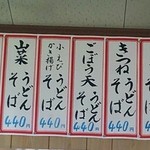 きつね
うどん
そば
440円
ごぼう天
うどん
そば
440円
小えび
かき揚げ
うどん
そば
440円
山菜
うどん
そば
440円